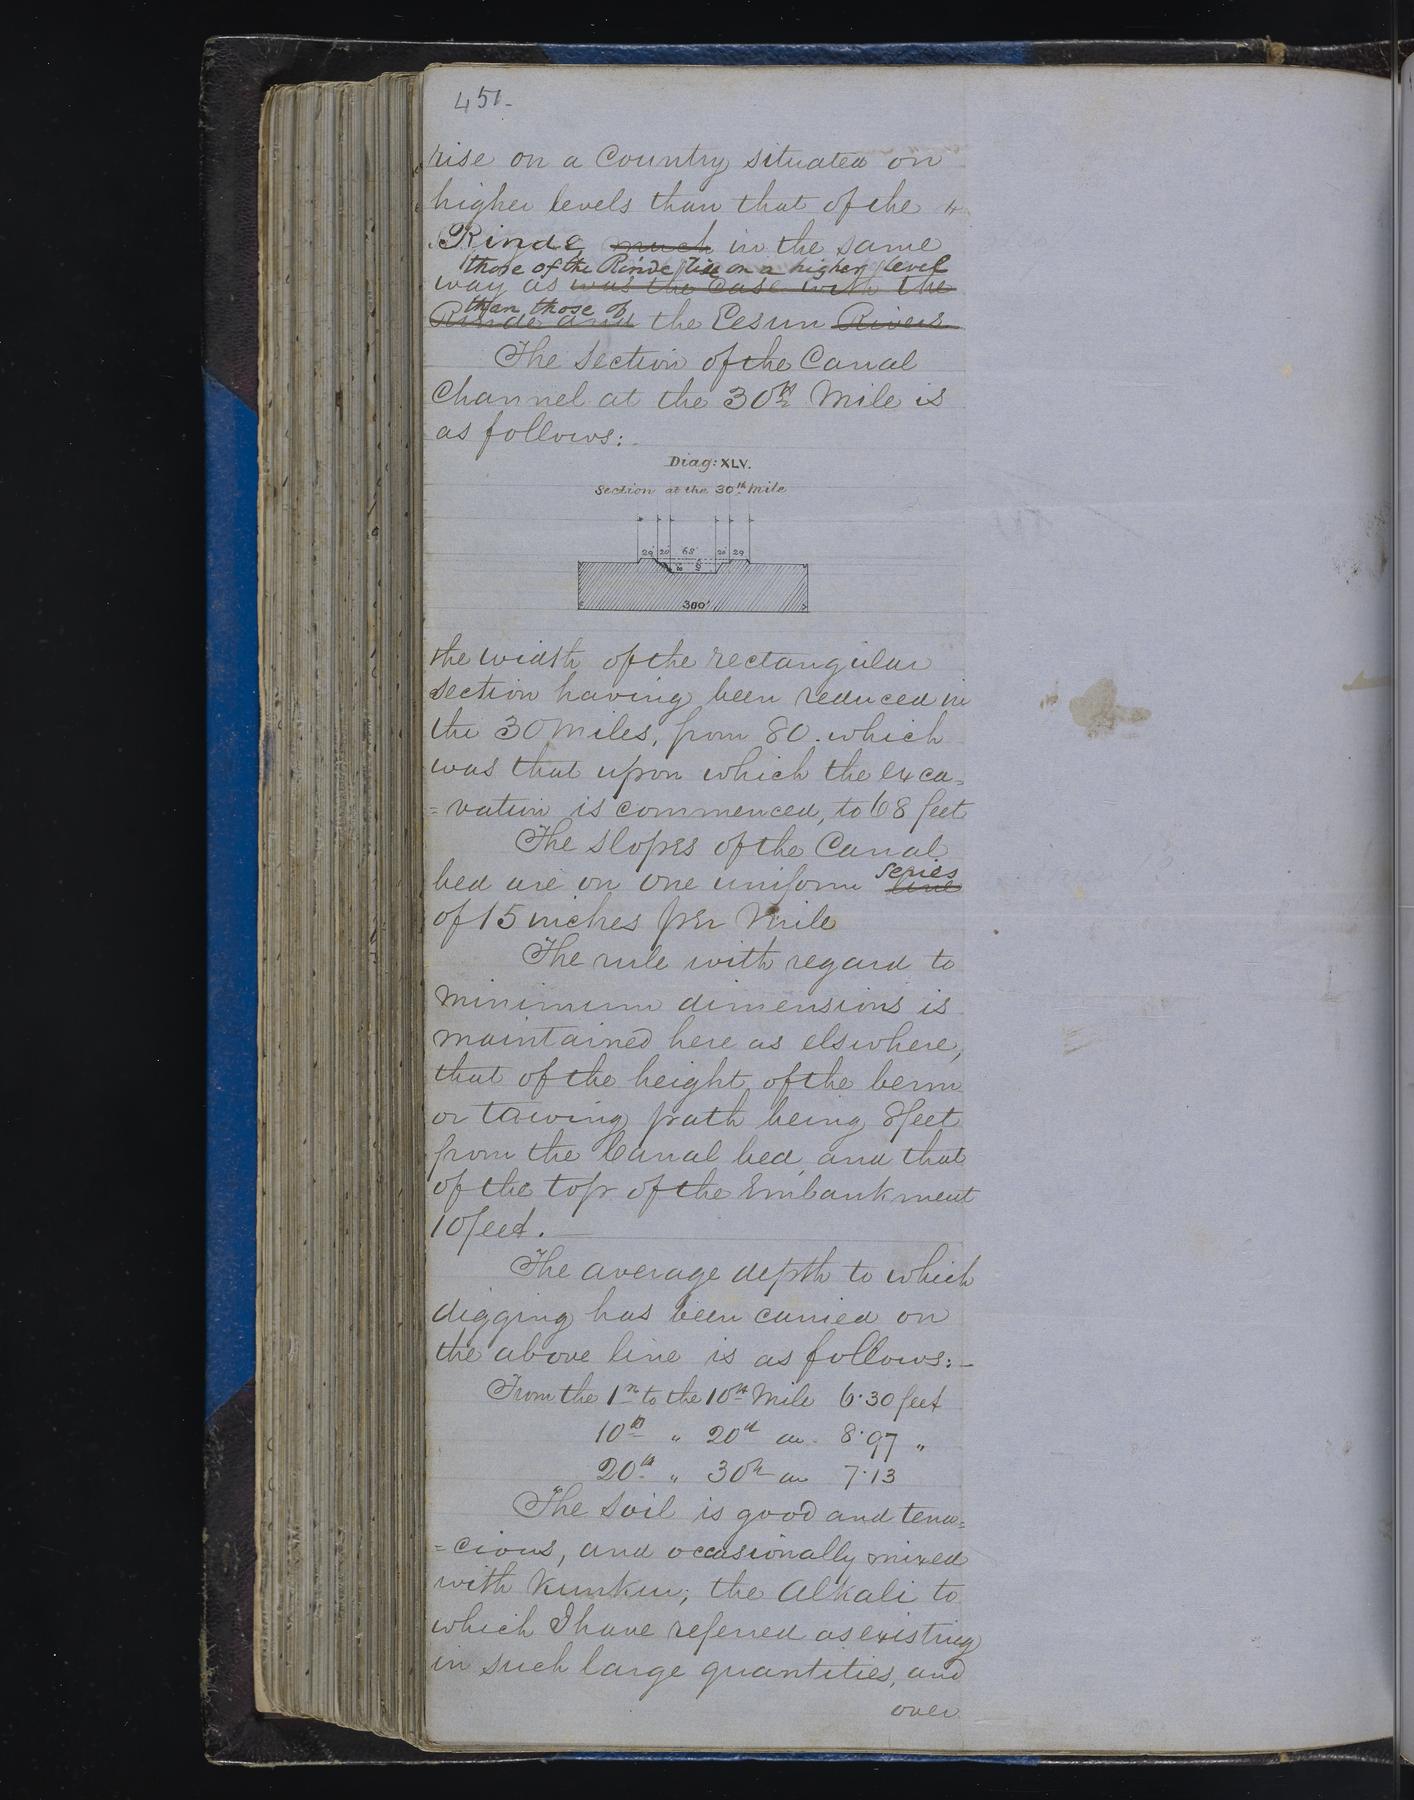 451-
rise on a Country situated on
higher levels than that of the
Rinde much in the same
those of the Rinde lie on a higher level
way as was the case with the
than those of
Rinde and the Eesun Rivers
The section of the Canal
Channel at the 30th Mile is
as follows:-
Diag: XLV.
Section at the 30th Mile
20 20 68' 20 20
8 5
300'
the width of the rectangular
section having been reduced in
the 30 miles, from 80. which
was that upon which the exca=
=vation is commenced, to 68 feet
The slopes of the Canal
series
bed are on one uniform line
of 15 inches per Mile
The rule with regard to
minimum dimensions is
maintained here as elswhere,
that of the height of the berm
or towing path being 8 feet
from the Canal bed, and that
of the top of the Embankment
10 feet.-
The average depth to which
digging has been carried on
the above line is as follows:-
From the 1st to the 10th Mile 6·30 feet
10th " 20th do 8·97 "
20th " 30th do 7·13
The soil is good and tena=
=cious, and occasionally mixed
with Kunkur; the Alkali to
which I have referred as existing
in such large quantities, and
over